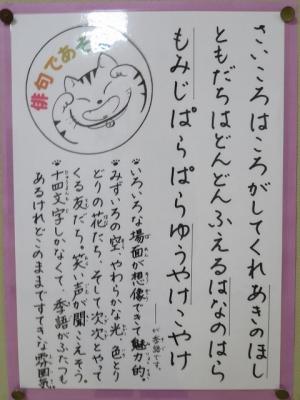 さいころはころがしてくれあきのほし
ともだちはどんどんふえるはなのはら
もみじぱらぱらゆうやけこやけ
が季語です。
俳句であそ
いろいろな場面が想像できて魅力的。
みずいろの空、やわらかな光、色とり
どりの花たち。そして次次とやって
くる友だち。笑い声が聞こえそう。
十四文字しかなくて、季語がふたつも
あるけれどこのままですてきな雰囲気